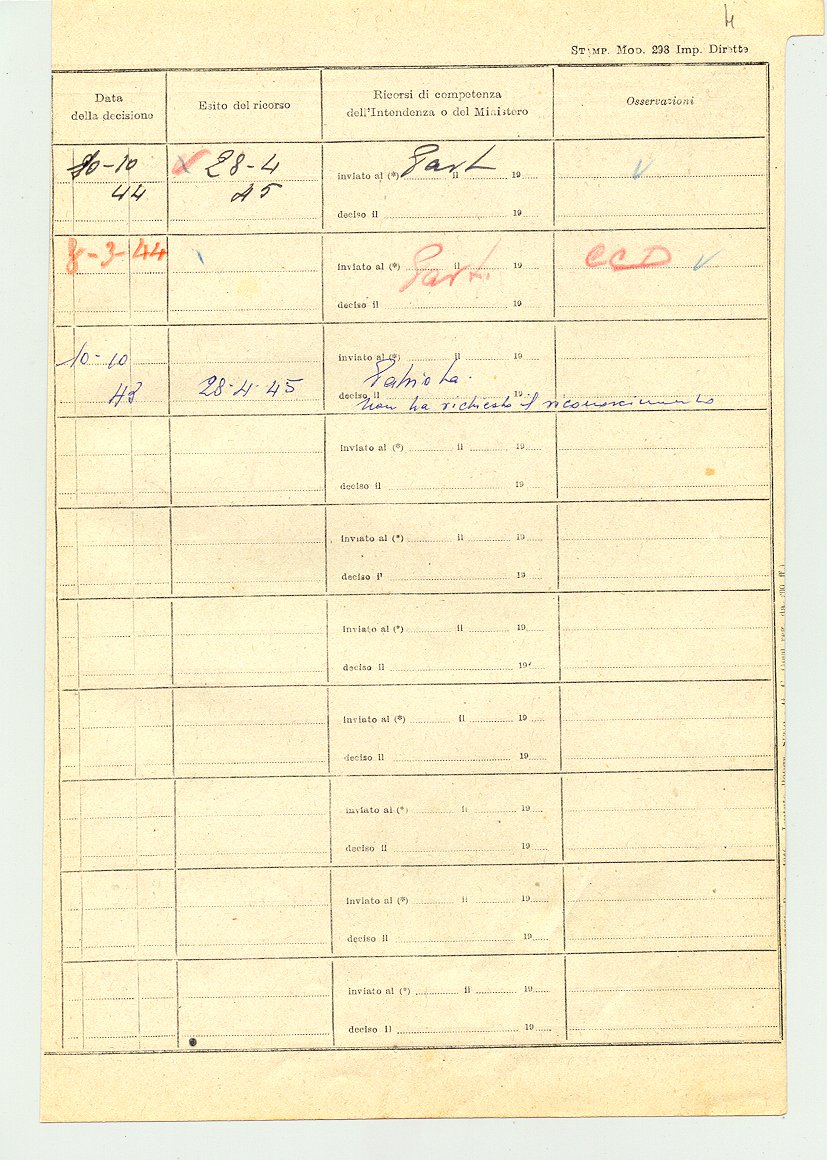 4
STAMP. MOD. 298 Imp. Dirette
Data
della decisione
Esito del ricorso
Ricorsi di competenza
dell'Intendenza o del Ministero
Osservazioni
10-10
44
28-4
45
inviato al (*) Part il 19
deciso il 19
8-3-44
inviato al (*) Part. il 19
deciso il 19
CCD
10-10
43
28-4-45
inviato al (*) il 19
Patriota.
deciso il 19
non ha richiesto il riconoscimento
inviato al (*) il 19
deciso il 19
inviato al (*) il 19
deciso il 19
inviato al (*) il 19
deciso il 19
inviato al (*) il 19
deciso il 19
inviato al (*) il 19
deciso il 19
inviato al (*) il 19
deciso il 19
inviato al (*) il 19
deciso il 19